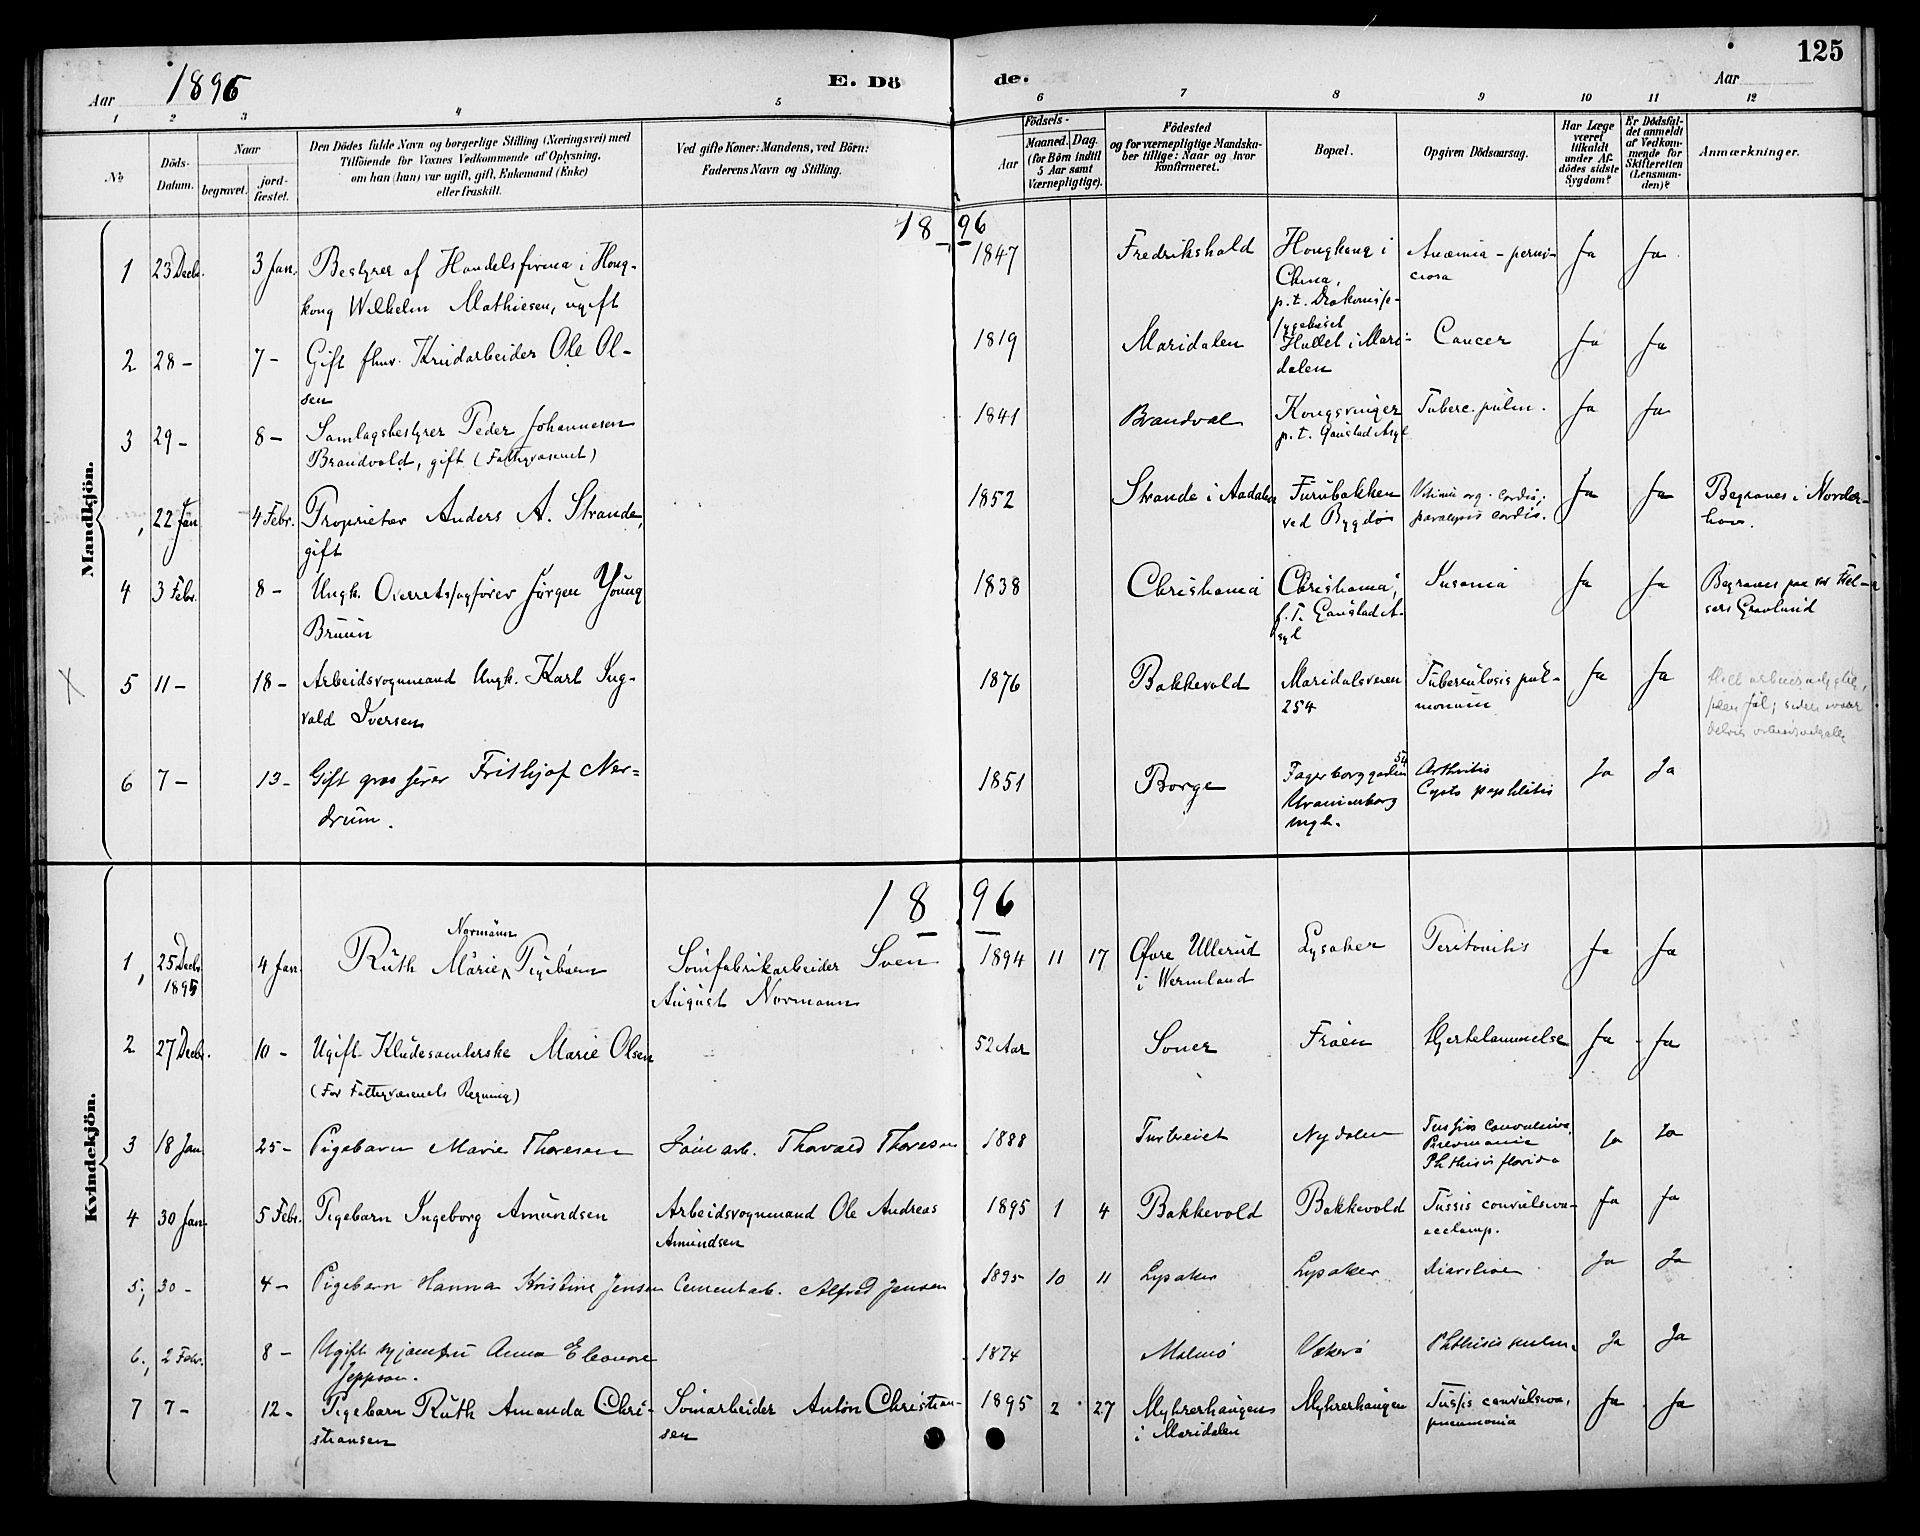 Aar 1896
E. Dö
de.
Aar
125
1 2 3 4 5 6 7 8 9 10 11 12
No
Döds-
Datum.
Naar
begravet.
jord-
fæstet.
Den Dödes fulde Navn og borgerlige Stilling (Næringsvei) med
Tilföiende for Voxnes Vedkommende af Oplysning,
om han (hun) var ugift, gift, Enkemand (Enke)
eller fraskilt.
Ved gifte Koner: Mandens, ved Börn:
Faderens Navn og Stilling.
Födsels-
Aar
Maaned. Dag.
(for Börn indtil
5 Aar samt
Værnepligtige).
Födested
og for værnepligtige Mandska-
ber tillige: Naar og hvor
konfirmeret.
Bopæl.
Opgiven Dödsaarsag.
Har Læge
været
tilkaldt
under Af-
dödes sidste
Sygdom?
Er Dödsfal-
det anmeldt
af Vedkom-
mende for
Skifteretten
(Lensman-
den)?
Anmærkninger.
Mandkjön.
1896
1 23 Decbr. 3 Jan. Bestyrer af Handelsfirma i Hong- 1847 Fredrikshald Hongkong i Anæmia - perni- Ja Ja
kong Wilhelm Mathiesen, ugift China, ciosa
p.t. Diakonisse-
sygehuset
2 28 - 7 - Gift fhnv. Krudarbeider Ole Ol- 1819 Maridalen Hullet i Mari- Cancer Ja Ja
sen dalen
3 29 - 8 - Samlagsbestyrer Peder Johannesen 1841 Brandval Kongsvinger Tuberc. pulm. Ja Ja
Brandvold, gift (Fattigvæsenet) p.t. Gaustad Asyl
, 22 Jan 4 Febr. Proprietær Anders A. Strande, 1852 Strande i Aadalen Furubakken Vitium org. cordis; Ja Ja Begraves i Norder-
gift ved Bygdø paralysis cordis. hov.
4 3 Febr. 8 - Ungk. Overretssagfører Jørgen Young 1838 Christiania Christiania, Insania Ja Ja Begraves paa vor Frel-
Bruun p.T. Gaustad A- sers Gravlund
syl
5 11 - 18 - Arbeidsvognmand Ungk. Karl Ing- 1876 Bakkevold Maridalsveien Tuberculosis pul- Ja Ja
vald Iversen 254 monum
6 7 - 13 - Gift grosserer Frithjof Ner- 1851 Borge Fagerborggaden 54 Arthritis Ja Ja
drum. Uranienborg
mgh.
Kvindekjön.
1896
1, 25 Decbr. 4 Jan. Ruth Marie Normann Pigebarn Soinfabrikarbeider Sven 1894 11 17 Øvre Ullerud Lysaker Peritonitis Ja Ja
1895 August Normann i Wermland
2 27 Decbr. 10 - Ugift Kludesamlerske Marie Olsen 52 Aar Soner Frøen Hjertelammelse Ja Ja
(For Fattigvæsenets Regning)
3 18 Jan. 25 - Pigebarn Marie Thoresen arb. Thorvald Thoresen 1888 Turbrevet Nydalen Tussis convulsiva,
Pnevmonia Ja Ja
Phthisis florida
4 30 Jan. 5 Febr. Pigebarn Ingeborg Amundsen Arbeidsvognmand Ole Andreas 1895 1 4 Bakkevold Bakkevold Tussis convulsiva- Ja Ja
Amundsen ecclamp.
5, 30 - 4 - Pigebarn Hanna Kristine Jensen Cementarb. Alfred Jensen 1895 10 11 Lysaker Lysaker Diarrhoe Ja Ja
6., 2 Febr. 8 - Ugift syjomfru Anna Eleonore 1874 Malmø Vækerø Phthisis pulm. Ja Ja
Jeppson.
7 7 - 12 - Pigebarn Ruth Amanda Chri- Soinarbeider Anton Christian- 1895 2 27 Myhrerhaugen Myhrerhaugen Tussis convulsiva, Ja Ja
stiansen sen i Maridalen pneumonia